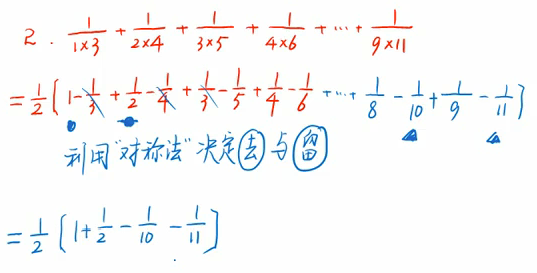 2. 1/1×3 + 1/2×4 + 1/3×5 + 1/4×6 + ... + 1/9×11
= 1/2 [1 - 1/3 + 1/2 - 1/4 + 1/3 - 1/5 + 1/4 - 1/6 + ... + 1/8 - 1/10 + 1/9 - 1/11]
利用"对称法"决定去与留
= 1/2 [1 + 1/2 - 1/10 - 1/11]